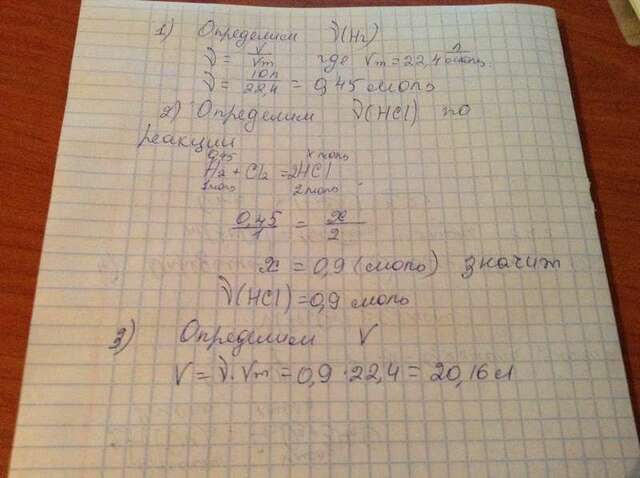 1) Определим ν(H2)
ν = V/Vm где Vm = 22,4 л/моль.
ν = 10л/22,4 = 0,45 моль
2) Определим ν(HCl) по
реакции
0,45 x моль
H2 + Cl2 = 2HCl
1моль 2моль
0,45/1 = x/2
x = 0,9 (моль) значит
ν(HCl) = 0,9 моль
3) Определим V
V = ν · Vm = 0,9 · 22,4 = 20,16 л